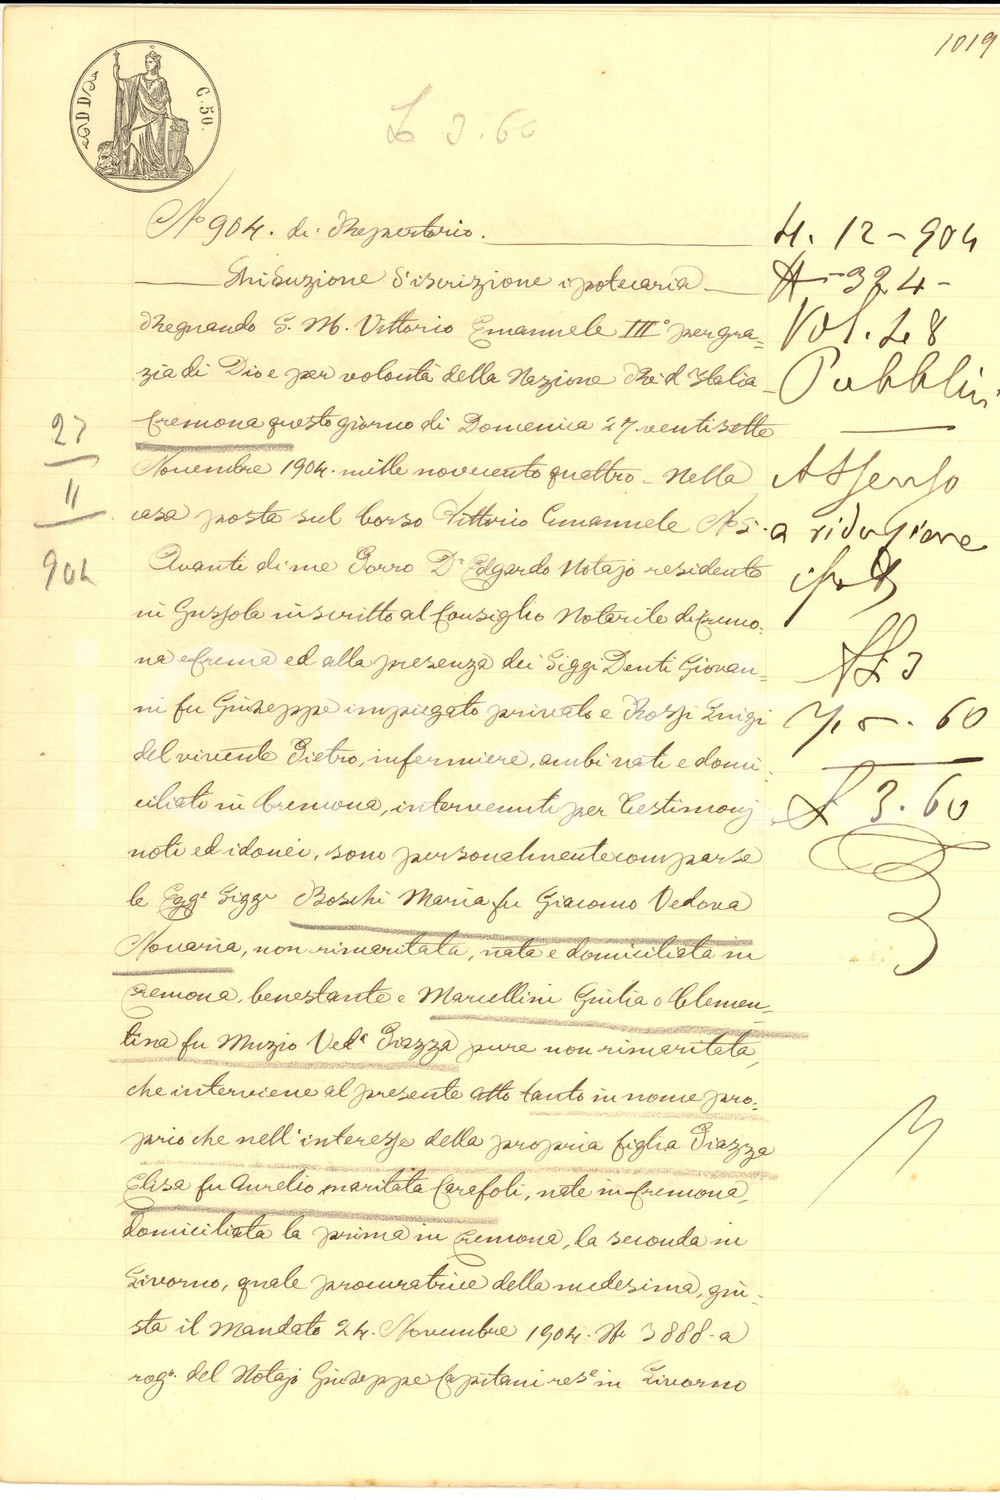 1019
C. 50.
L 3.60
No 904. di Repertorio.
Riduzione d'iscrizione ipotecaria
Regnando S. M. Vittorio Emanuele III° per gra=
zia di Dio e per volontà della Nazione Re d'Italia
Cremona questo giorno di Domenica 27 ventisette
Novembre 1904. mille novecento quattro - Nella
casa posta sul Corso Vittorio Emanuele No 5.
Avanti di me Porro Dr Edgardo Notajo residente
in Gussola inscritto al Consiglio Notarile di Cremo=
na e Crema ed alla presenza dei Siggi Denti Giovan=
ni fu Giuseppe impiegato privato e Rossi Luigi
del vivente Pietro, infermiere, ambi nati e domi=
ciliati in Cremona, intervenuti per Testimonj
noti ed idonei, sono personalmente comparse
le Egge Siggre Boschi Maria fu Giacomo Vedova
Novaria, non rimaritata, nata e domiciliata in
Cremona, benestante e Marcellini Giulia o Clemen=
tina fu Muzio Veda Piazza pure non rimaritata,
che interviene al presente atto tanto in nome pro=
prio che nell'interesse della propria figlia Piazza
Elisa fu Aurelio maritata Carefoli, nate in Cremona,
domiciliata la prima in Cremona, la seconda in
Livorno, quale procuratrice della medesima, giu=
sta il Mandato 24. Novembre 1904. No 3888. a
rogi. del Notajo Giuseppe Capitani rese in Livorno
27
11
904
4. 12 - 904
# 324 -
Vol. 48
Pubblici
Assenso
a riduzione
ipot
3
60
L 3.60